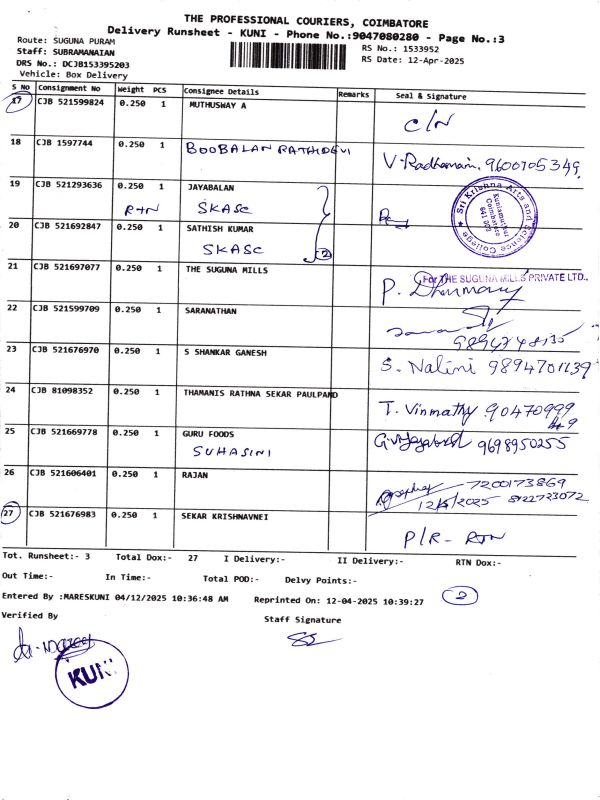 THE PROFESSIONAL COURIERS, COIMBATORE
Delivery Runsheet - KUNI - Phone No.:9047080280 - Page No.:3
Route: SUGUNA PURAM
RS No.: 1533952
Staff: SUBRAMANAIAN
RS Date: 12-Apr-2025
DRS No.: DCJB153395203
Vehicle: Box Delivery
S No Consignment No Weight PCS Consignee Details Remarks Seal & Signature
17 CJB 521599824 0.250 1 MUTHUSWAY A
C/N
18 CJB 1597744 0.250 1 BOOBALAN RATHIDEVI
V. Radhamani. 9600705349
19 CJB 521293636 0.250 1 JAYABALAN
RTN SKASC
Sri Krishna Arts and Science College
Kuniamuthur Coimbatore 641 008
20 CJB 521692847 0.250 1 SATHISH KUMAR
SKASC 2
21 CJB 521697077 0.250 1 THE SUGUNA MILLS
For THE SUGUNA MILLS PRIVATE LTD.,
22 CJB 521599709 0.250 1 SARANATHAN
23 CJB 521676970 0.250 1 S SHANKAR GANESH
S. Nalini
24 CJB 81098352 0.250 1 THAMANIS RATHNA SEKAR PAULPAND
T. Vinmathy 90470999
49
25 CJB 521669778 0.250 1 GURU FOODS
SUHASINI
9698950255
26 CJB 521606401 0.250 1 RAJAN
7200173869
8122723072
27 CJB 521676983 0.250 1 SEKAR KRISHNAVNEI
P/R - RTN
Tot. Runsheet:- 3 Total Dox:- 27 I Delivery:- II Delivery:- RTN Dox:-
Out Time:- In Time:- Total POD:- Delvy Points:-
Entered By :MARESKUNI 04/12/2025 10:36:48 AM Reprinted On: 12-04-2025 10:39:27
2
Verified By
Staff Signature
KUNI